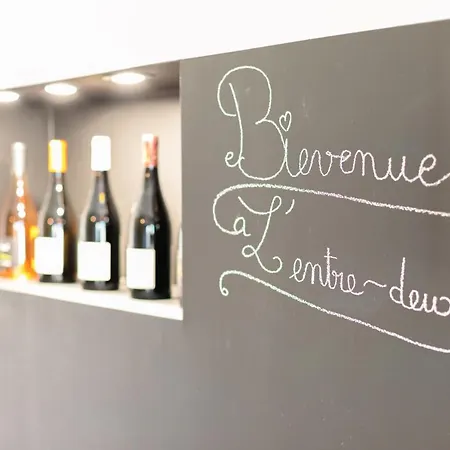 Bievenue
à L'entre-deux